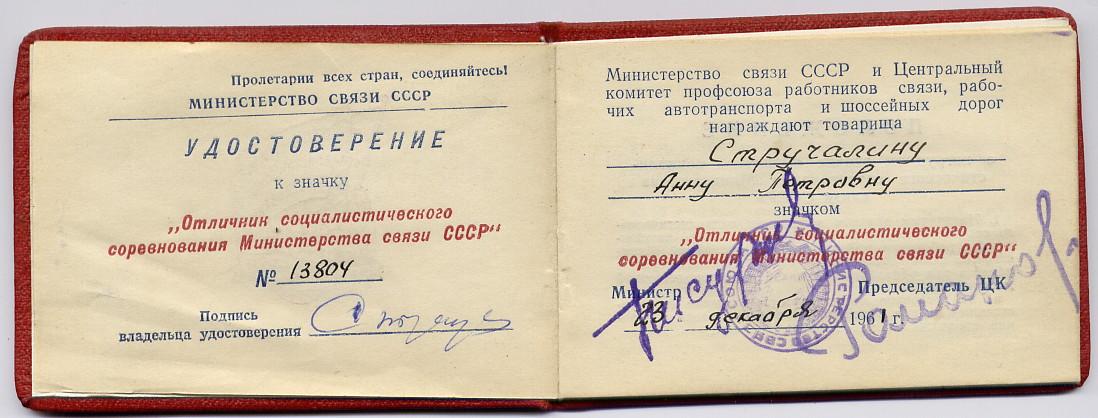 Пролетарии всех стран, соединяйтесь!
МИНИСТЕРСТВО СВЯЗИ СССР
УДОСТОВЕРЕНИЕ
к значку
„Отличник социалистического
соревнования Министерства связи СССР“
№ 13804
Подпись
владельца удостоверения
Министерство связи СССР и Центральный
комитет профсоюза работников связи, рабо-
чих автотранспорта и шоссейных дорог
награждают товарища
Стручалину
Анну Петровну
значком
„Отличник социалистического
соревнования Министерства связи СССР“
Министр Председатель ЦК
23 декабря 1961 г.